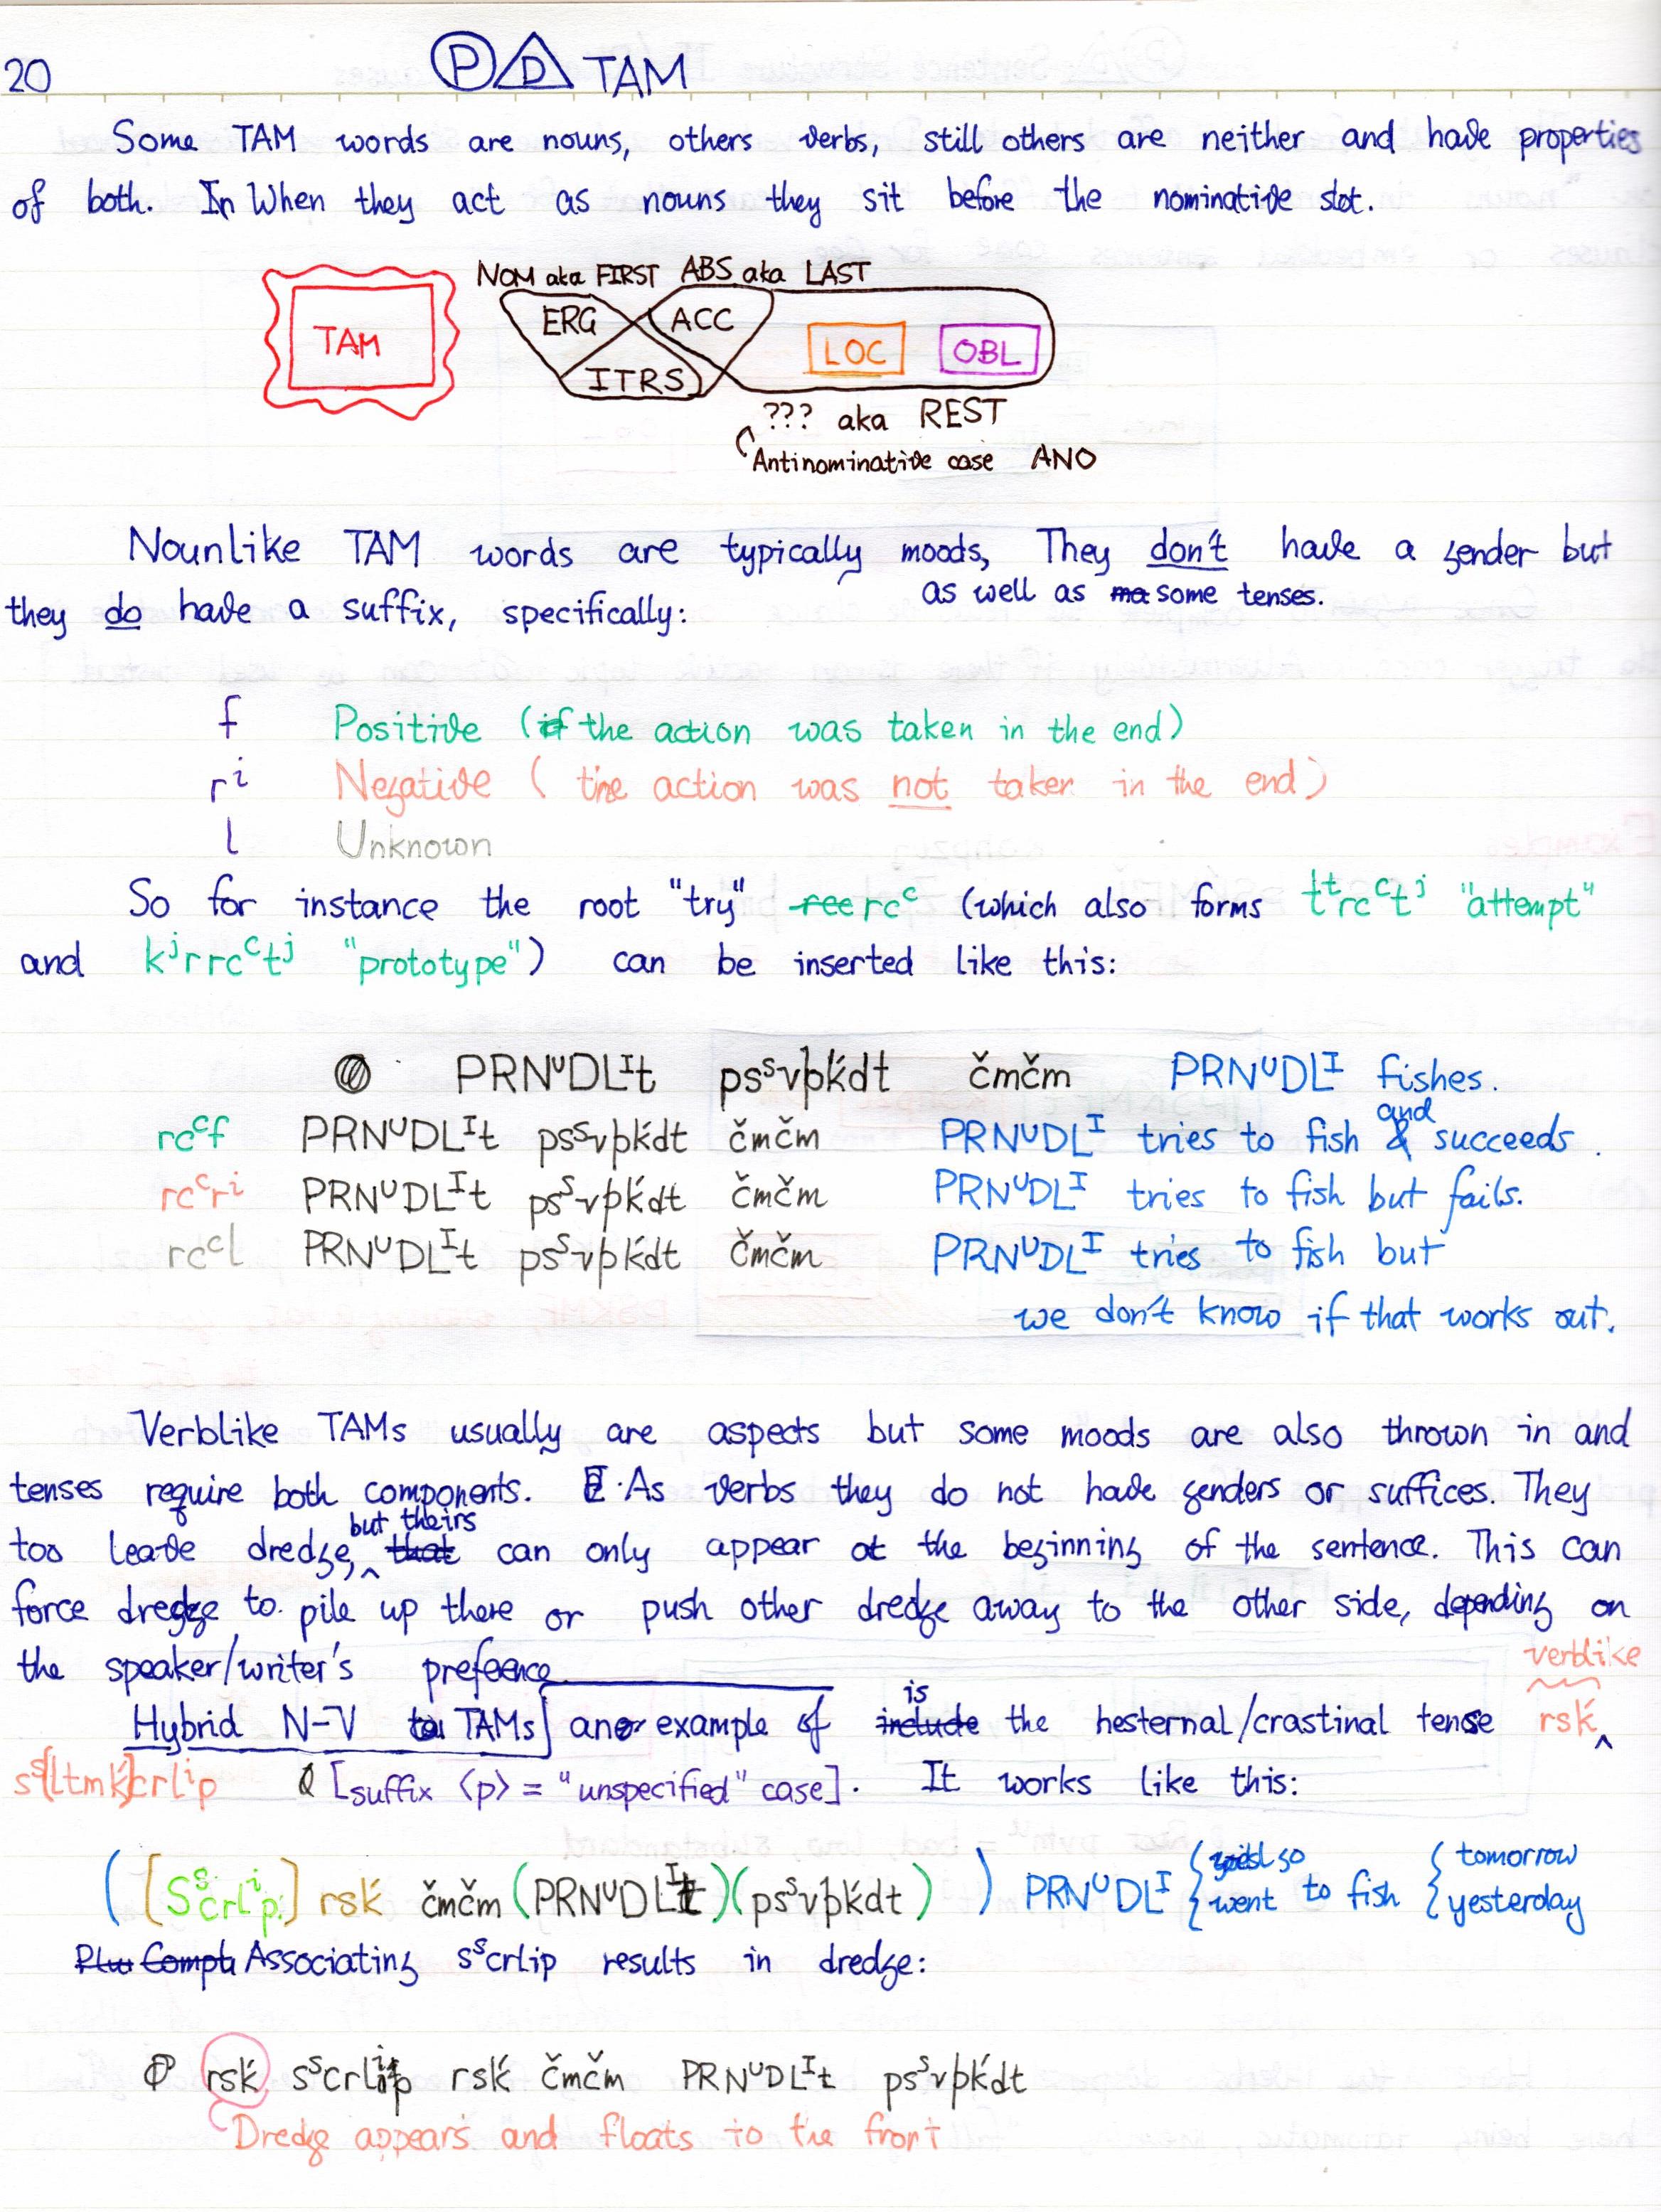 20 Ⓟ D TAM
Some TAM words are nouns, others verbs, still others are neither and have properties
of both. In When they act as nouns they sit before the nominative slot.
NOM aka FIRST ABS aka LAST
TAM ERG ACC LOC OBL
ITRS
??? aka REST
Antinominative case ANO
Nounlike TAM words are typically moods, They don't have a gender but
as well as some tenses.
they do have a suffix, specifically:
f Positive (if the action was taken in the end)
rⁱ Negative (the action was not taken in the end)
l Unknown
So for instance the root "try" ree rcᶜ (which also forms tᵗrcᶜtʲ "attempt"
and kʲrrcᶜtʲ "prototype") can be inserted like this:
PRNᵁDLᴵt psˢvþḱdt čmčm PRNᵁDLᴵ fishes.
rcᶜf PRNᵁDLᴵt psˢvþḱdt čmčm PRNᵁDLᴵ tries to fish & and succeeds.
rcᶜrⁱ PRNᵁDLᴵt psˢvþḱdt čmčm PRNᵁDLᴵ tries to fish but fails.
rcᶜl PRNᵁDLᴵt psˢvþḱdt čmčm PRNᵁDLᴵ tries to fish but
we don't know if that works out.
Verblike TAMs usually are aspects but some moods are also thrown in and
tenses require both components. As verbs they do not have genders or suffices. They
too leave dredge, that but theirs can only appear at the beginning of the sentence. This can
force dredge to pile up there or push other dredge away to the other side, depending on
the speaker/writer's prefeence
verblike
Hybrid N-V TAMs an example of include is the hesternal/crastinal tense rsḱ
sˢ[ltmḱ]crlⁱp [suffix ⟨p⟩ = "unspecified" case]. It works like this:
([Sˢcrlⁱp] rsḱ čmčm (PRNᵁDLᴵt)(psˢvþḱdt)) PRNᵁDLᴵ { so went to fish { tomorrow yesterday
Associating sˢcrlip results in dredge:
rsḱ sˢcrlⁱp rsḱ čmčm PRNᵁDLᴵt psˢvþḱdt
Dredge appears and floats to the front